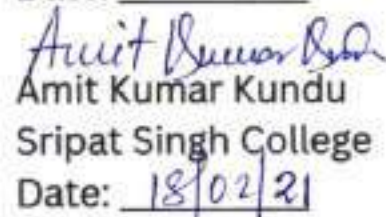 Amit Kumar Kundu
Amit Kumar Kundu
Sripat Singh College
Date: 18/02/21